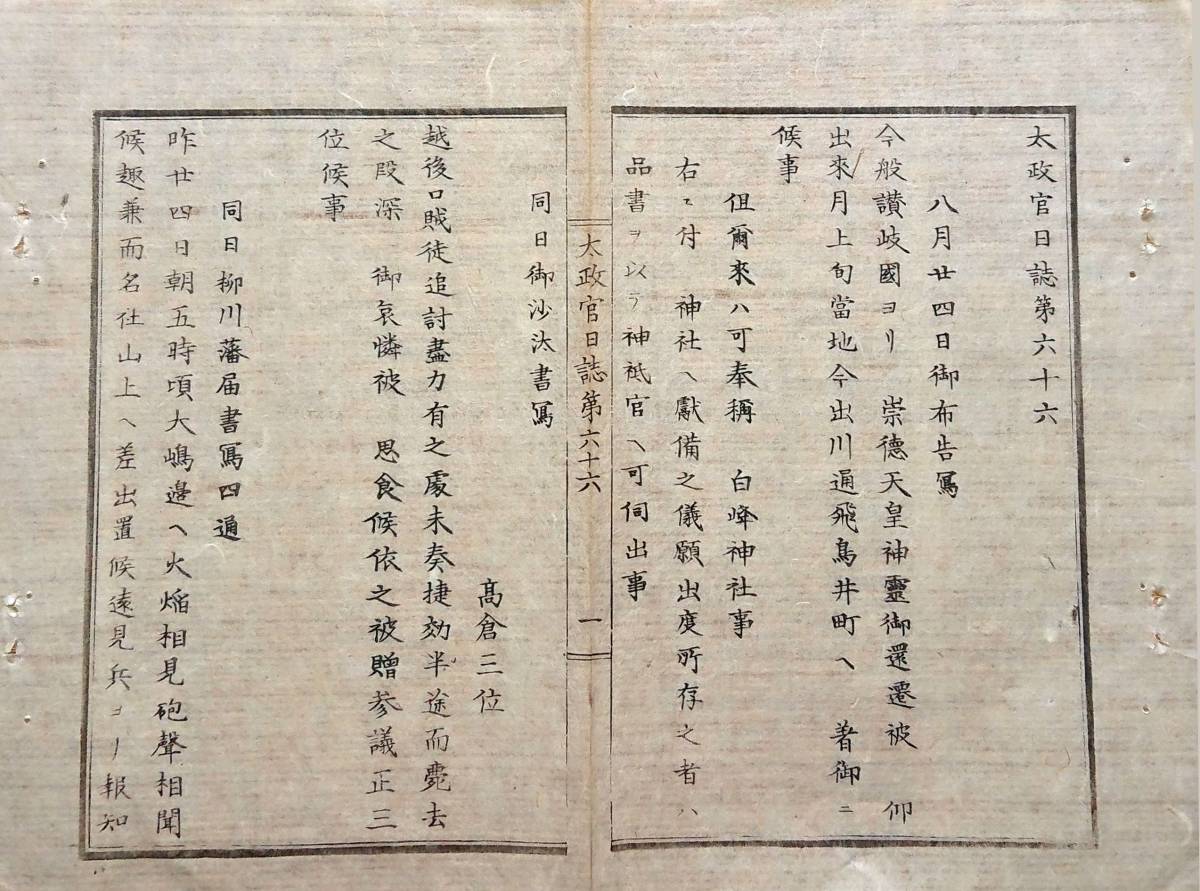 太政官日誌第六十六
八月廿四日御布告寫
今般讃岐國ヨリ　崇德天皇神靈御還遷被　仰
出來月上旬當地今出川通飛鳥井町ヘ　著御ニ
候事
但爾來ハ可奉稱　白峰神社事
右ニ付　神社ヘ獻備之儀願出度所存之者ハ
品書ヲ以テ神祇官ヘ可伺出事
太政官日誌第六十六　一
同日御沙汰書寫
高倉三位
越後口賊徒追討盡力有之處未奏捷効半途而斃去
之段深　御哀憐被　思食候依之被贈參議正三
位候事
同日柳川藩届書寫四通
昨廿四日朝五時頃大嶋邉ヘ火焔相見砲聲相聞
候趣兼而名仕山上ヘ差出置候遠見兵ヨリ報知